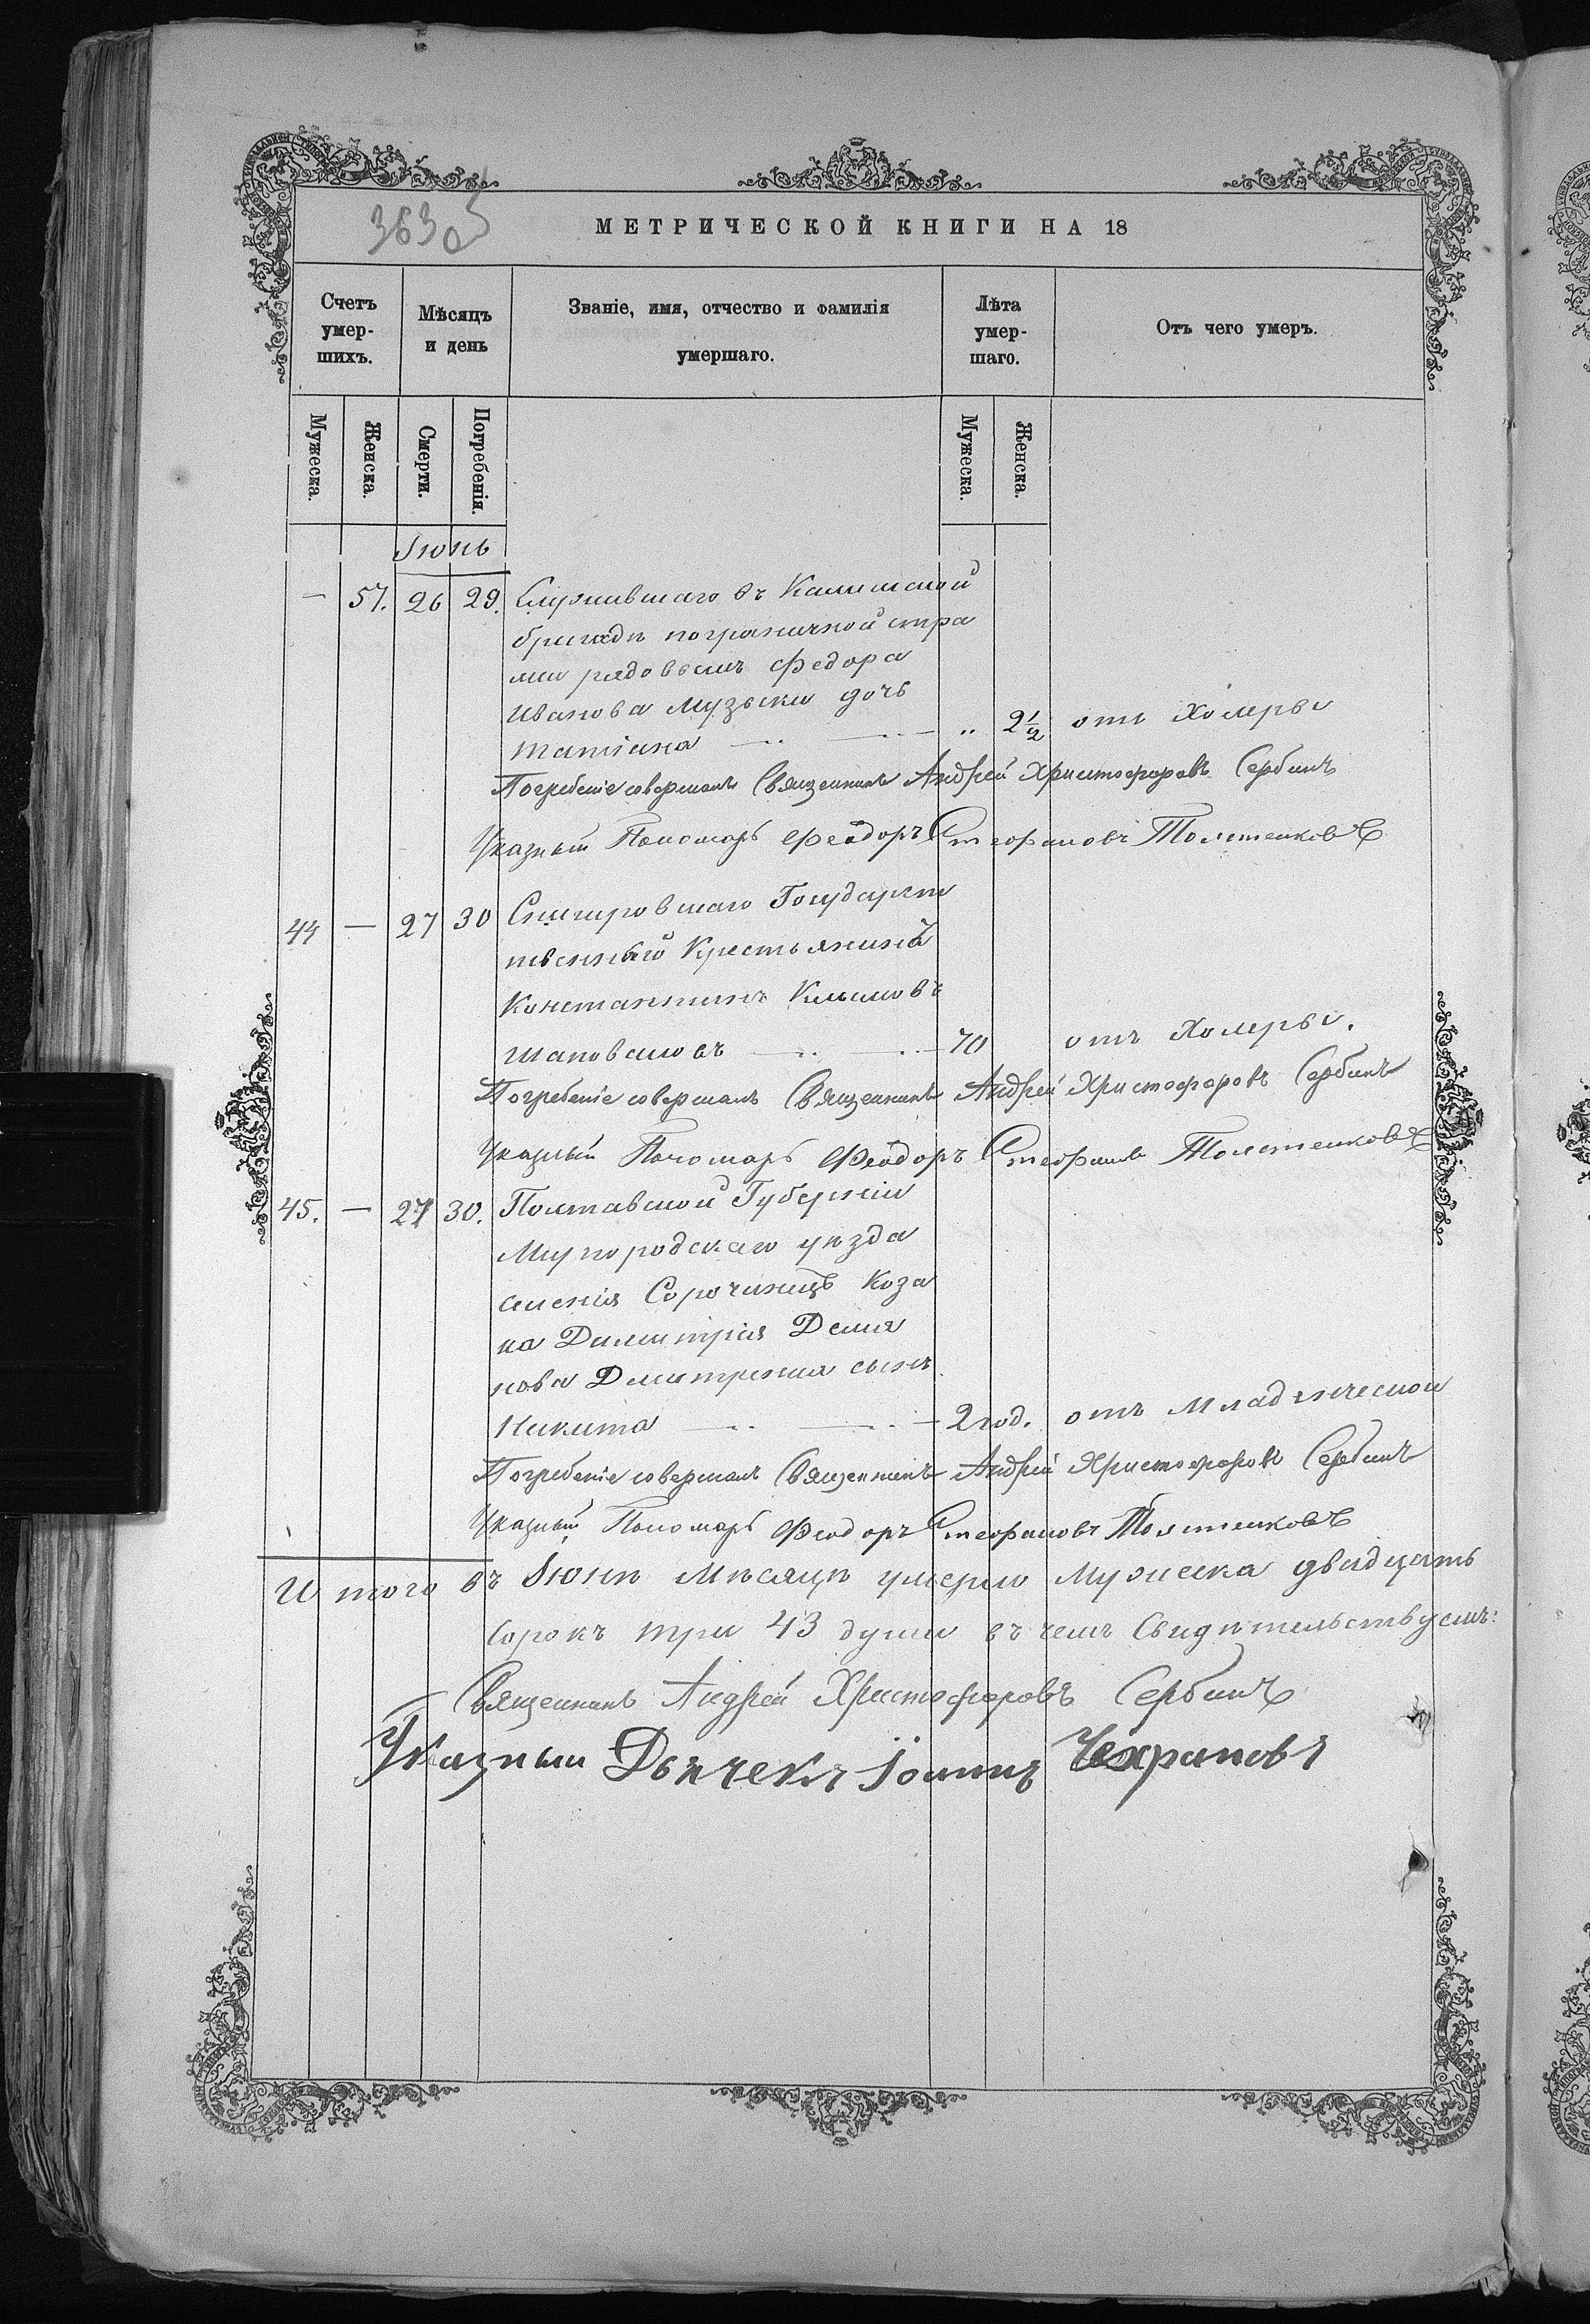 363об
МЕТРИЧЕСКОЙ КНИГИ НА 18
Счетъ умер-шихъ.
Мѣсяцъ и день
Званіе, имя, отчество и фамилія умершаго.
Лѣта умер-шаго.
Отъ чего умеръ.
Мужеска. Женска. Смерти. Погребенія. Мужеска. Женска.
Іюнь
— 57. 26 29. Служившаго въ Калишской
бригадѣ пограничной стра
жи рядовымъ Федора
Иванова Музыки дочь
Татіана — „ 2½ отъ Холеры
Погребеніе совершалъ Священникъ Андрей Христофоровъ Сербинъ
Указный Пономарь Феодоръ Стефановъ Толстенковъ
44 — 27 30 Государст
твенный Крестьянинъ
Константинъ Климовъ
Шаповаловъ — 70 отъ Холеры.
Погребеніе совершалъ Священникъ Андрей Христофоровъ Сербинъ
Указный Пономарь Феодоръ Стефановъ Толстенковъ
45. — 27 30. Полтавской Губерніи
Миргородскаго уѣзда
селенія Сорочинецъ Коза
ка Димитрія Демя
нова Дмитренка сынъ
Никита — 2 год. отъ Младенческой
Погребеніе совершалъ Священникъ Андрей Христофоровъ Сербинъ
Указный Пономарь Феодоръ Стефановъ Толстенковъ
Итого въ Іюнѣ мѣсяцѣ умерло Мужеска двадцать
Сорокъ три 43 души въ чемъ Свидѣтельствуемъ:
Священникъ Андрей Христофоровъ Сербинъ
Указный Дьячекъ Іоаннъ